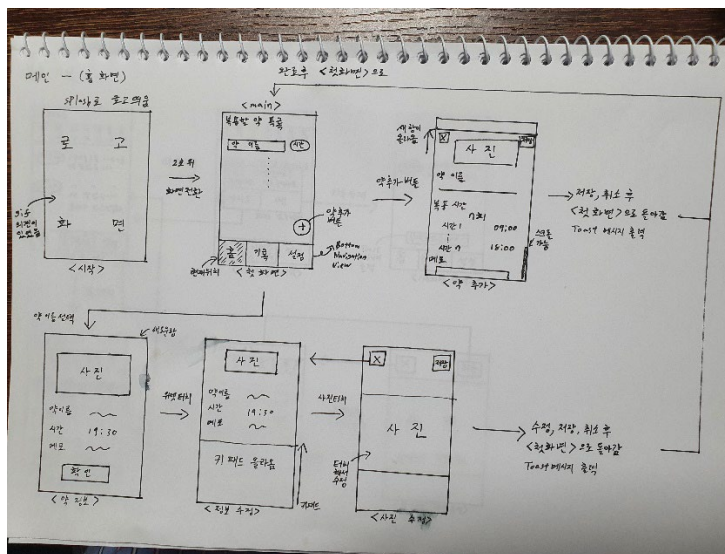 메인 - (홈 화면)
완료후 <첫화면>으로
splash로 로고 띄움
<main>
로 고
화 면
<시작>
2초 뒤
화면전환
복용할 약 목록
약 이름
시간
+
약추가
버튼
홈
기록
설정
Bottom
Navigation
View
현재위치
<첫 화면>
약추가 버튼
새창이
올라옴
X
저장
사 진
약 이름
복용 시간
시간 1
09:00
시간 n
18:00
메모
스크롤
가능
<약 추가>
저장, 취소 후
<첫 화면>으로 돌아감
Toast 메시지 출력
약 이름 선택
사 진
약이름
시간
19:30
메모
확 인
<약 정보>
위젯터치
사 진
약이름
시간
19:30
메모
키 패드 올라옴
키패드
<정보 수정>
사진터치
X
저장
사 진
터치
해서
수정
<사진 수정>
수정, 저장, 취소 후
<첫화면>으로 돌아감
Toast 메시지 출력